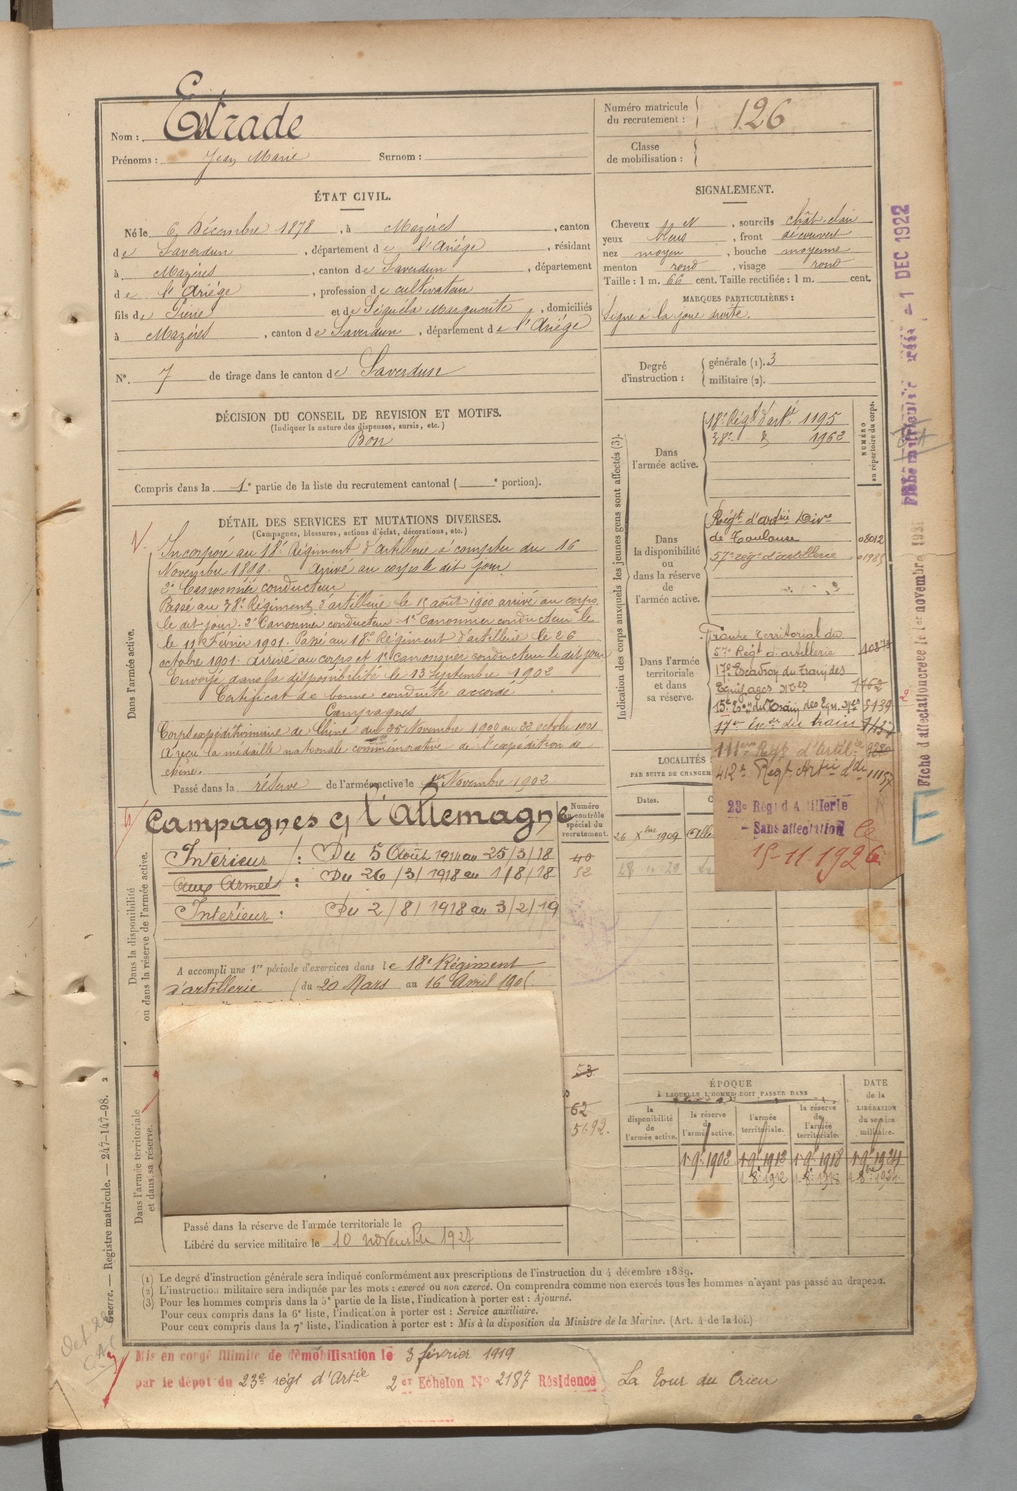 Nom : Estrade
Prénoms : Jean Marie Surnom :
Numéro matricule du recrutement : 126
Classe de mobilisation :
ÉTAT CIVIL.
Né le 6 Décembre 1878, à Mazères, canton
de Saverdun, département de l'Ariége, résidant
à Mazères, canton de Saverdun, département
de l'Ariége, profession de cultivateur
fils de et de Séguéla Marguerite, domiciliés
à Mazères, canton de Saverdun, département de l'Ariége
N° 7 de tirage dans le canton de Saverdun
SIGNALEMENT.
Cheveux N, sourcils chât. clair
yeux bleus, front découvert
nez moyen, bouche moyenne
menton rond, visage rond
Taille : 1 m. 66 cent. Taille rectifiée : 1 m. cent.
MARQUES PARTICULIÈRES :
signe à la joue droite.
Degré d'instruction : générale (1). 3
militaire (2).
DÉCISION DU CONSEIL DE REVISION ET MOTIFS.
(Indiquer la nature des dispenses, sursis, etc.)
Bon
Compris dans la 1e partie de la liste du recrutement cantonal ( e portion).
DÉTAIL DES SERVICES ET MUTATIONS DIVERSES.
(Campagnes, blessures, actions d'éclat, décorations, etc.)
Dans l'armée active.
Incorporé au 18e Régiment d'artillerie à compter du 16
Novembre 1899. Arrivé au corps le dit jour
2e Canonnier conducteur
Passé au 38e Régiment d'artillerie le 15 août 1900 arrivé au corps
le dit jour. 2e Canonnier conducteur 1e Canonnier conducteur le
le 11 Février 1901. Passé au 18e Régiment d'artillerie le 26
octobre 1901. arrivé au corps et 1e Canonnier conducteur le dit jour
Envoyé dans la disponibilité le 13 Septembre 1902
Certificat de bonne conduite accordé
Campagnes
Corps expéditionnaire de Chine du Novembre 1900 au octobre 1901
A reçu la médaille nationale commémorative de l'expédition de
chine.
Passé dans la réserve de l'armée active le 1er Novembre 1902
Indication des corps auxquels les jeunes gens sont affectés (3).
NUMÉRO au répertoire du corps.
Dans l'armée active.
18e Régt d'artie 1195
38e d° 1962
Dans la disponibilité ou dans la réserve de l'armée active.
Régt d'artie Divre
de Toulouse 08012
57e régt d'artillerie 01985
Dans l'armée territoriale et dans sa réserve.
Train territorial du
57e Régt d'artillerie
17e Escadron du Train des
Equipages Mres 1762
15e Eon du Train des Eq. Mres 5139
17e Eon du train
111eme Régt d'Artie 9280
412e Régt Artie 11157
23e Régt d'Artillerie
- Sans affectation
15-11-1926
LOCALITÉS
PAR SUITE DE CHANGEM
Dates.
26 Xbre 1909
Numéro au contrôle spécial du recrutement.
40
52
53
62
5692.
Dans la disponibilité ou dans la réserve de l'armée active.
Campagnes c/ l'Allemagne
Intérieur : Du 5 Août 1914 au 25/3/18
aux Armées : Du 26/3/1918 au 1/8/18
Intérieur : Du 2/8/1918 au 3/2/19
A accompli une 1re période d'exercices dans le 18e Régiment
d'artillerie du 20 Mars au 16 Avril
Dans l'armée territoriale et dans sa réserve.
Passé dans la réserve de l'armée territoriale le
Libéré du service militaire le 10 novembre 1927
ÉPOQUE
À LAQUELLE L'HOMME DOIT PASSER DANS
la disponibilité de l'armée active.
la réserve de l'armée active.
l'armée territoriale.
la réserve de l'armée territoriale.
DATE de la LIBÉRATION du service militaire.
1-9-1902 1-9-1912 1-9-1918 1-9-1924
1-8-1912 1-8-1918 1-8-1924
(1) Le degré d'instruction générale sera indiqué conformément aux prescriptions de l'instruction du 4 décembre 1889.
(2) L'instruction militaire sera indiquée par les mots : exercé ou non exercé. On comprendra comme non exercés tous les hommes n'ayant pas passé au drapeau.
(3) Pour les hommes compris dans la 5e partie de la liste, l'indication à porter est : Ajourné.
Pour ceux compris dans la 6e liste, l'indication à porter est : Service auxiliaire.
Pour ceux compris dans la 7e liste, l'indication à porter est : Mis à la disposition du Ministre de la Marine. (Art. 4 de la loi.)
Mis en congé illimité de démobilisation le 3 février 1919
par le dépôt du 23e régt d'Artie 2e Echelon N° 2187 Résidence La Tour du Crieu
Guerre. — Registre matricule. — 247-147-98. 2
Fiche matriculaire 1 DEC 1922
Fiche d'affectation créée le 1er novembre 1931
E